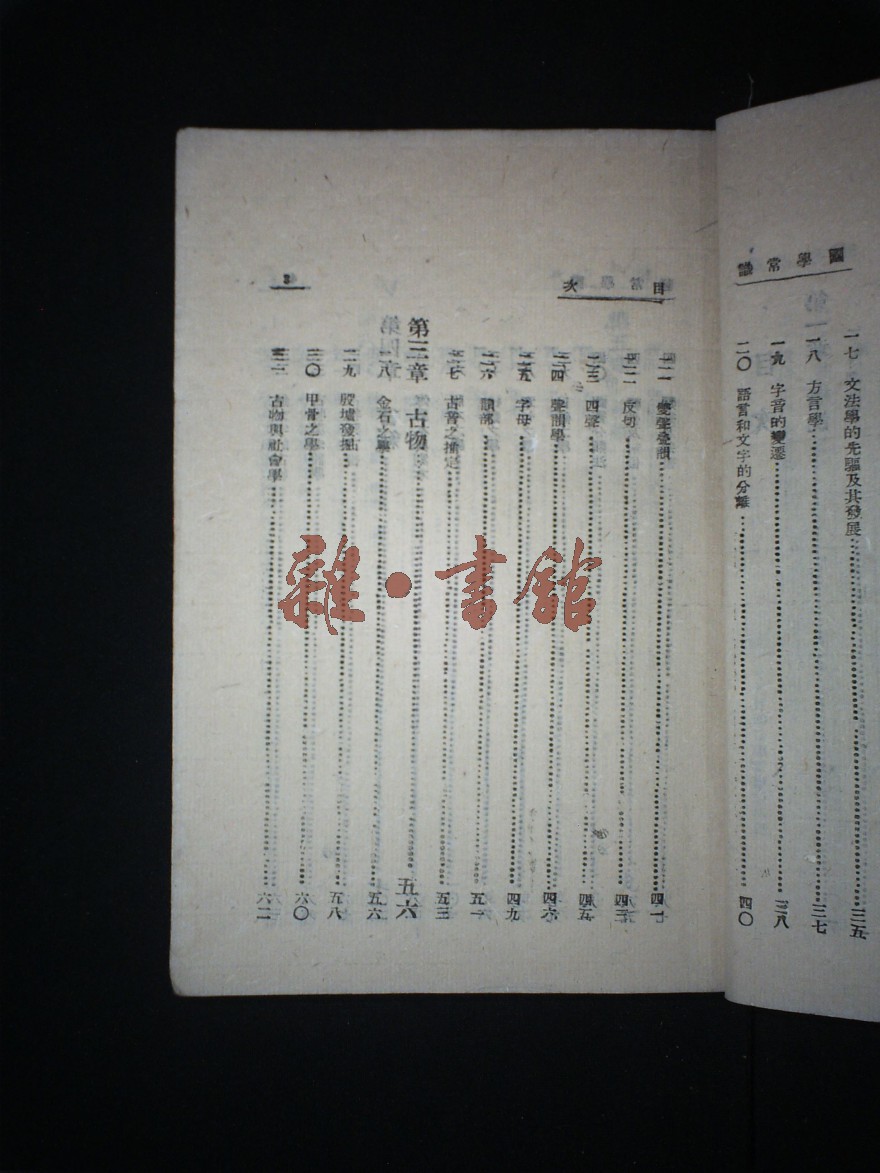 國學常識
一七 文法學的先驅及其發展……三五
一八 方言學……三七
一九 字音的變遷……三八
二〇 語言和文字的分離……四〇
目次
3
二一 雙聲疊韻……四一
二二 反切……四三
二三 四聲……四五
二四 聲韻學……四六
二五 字母……四九
二六 韻部……五一
二七 古音之擬定……五三
第三章 古物……五六
二八 金石之學……五六
二九 殷墟發掘……五八
三〇 甲骨之學……六〇
三一 古物與社會學……六二
雜·書館